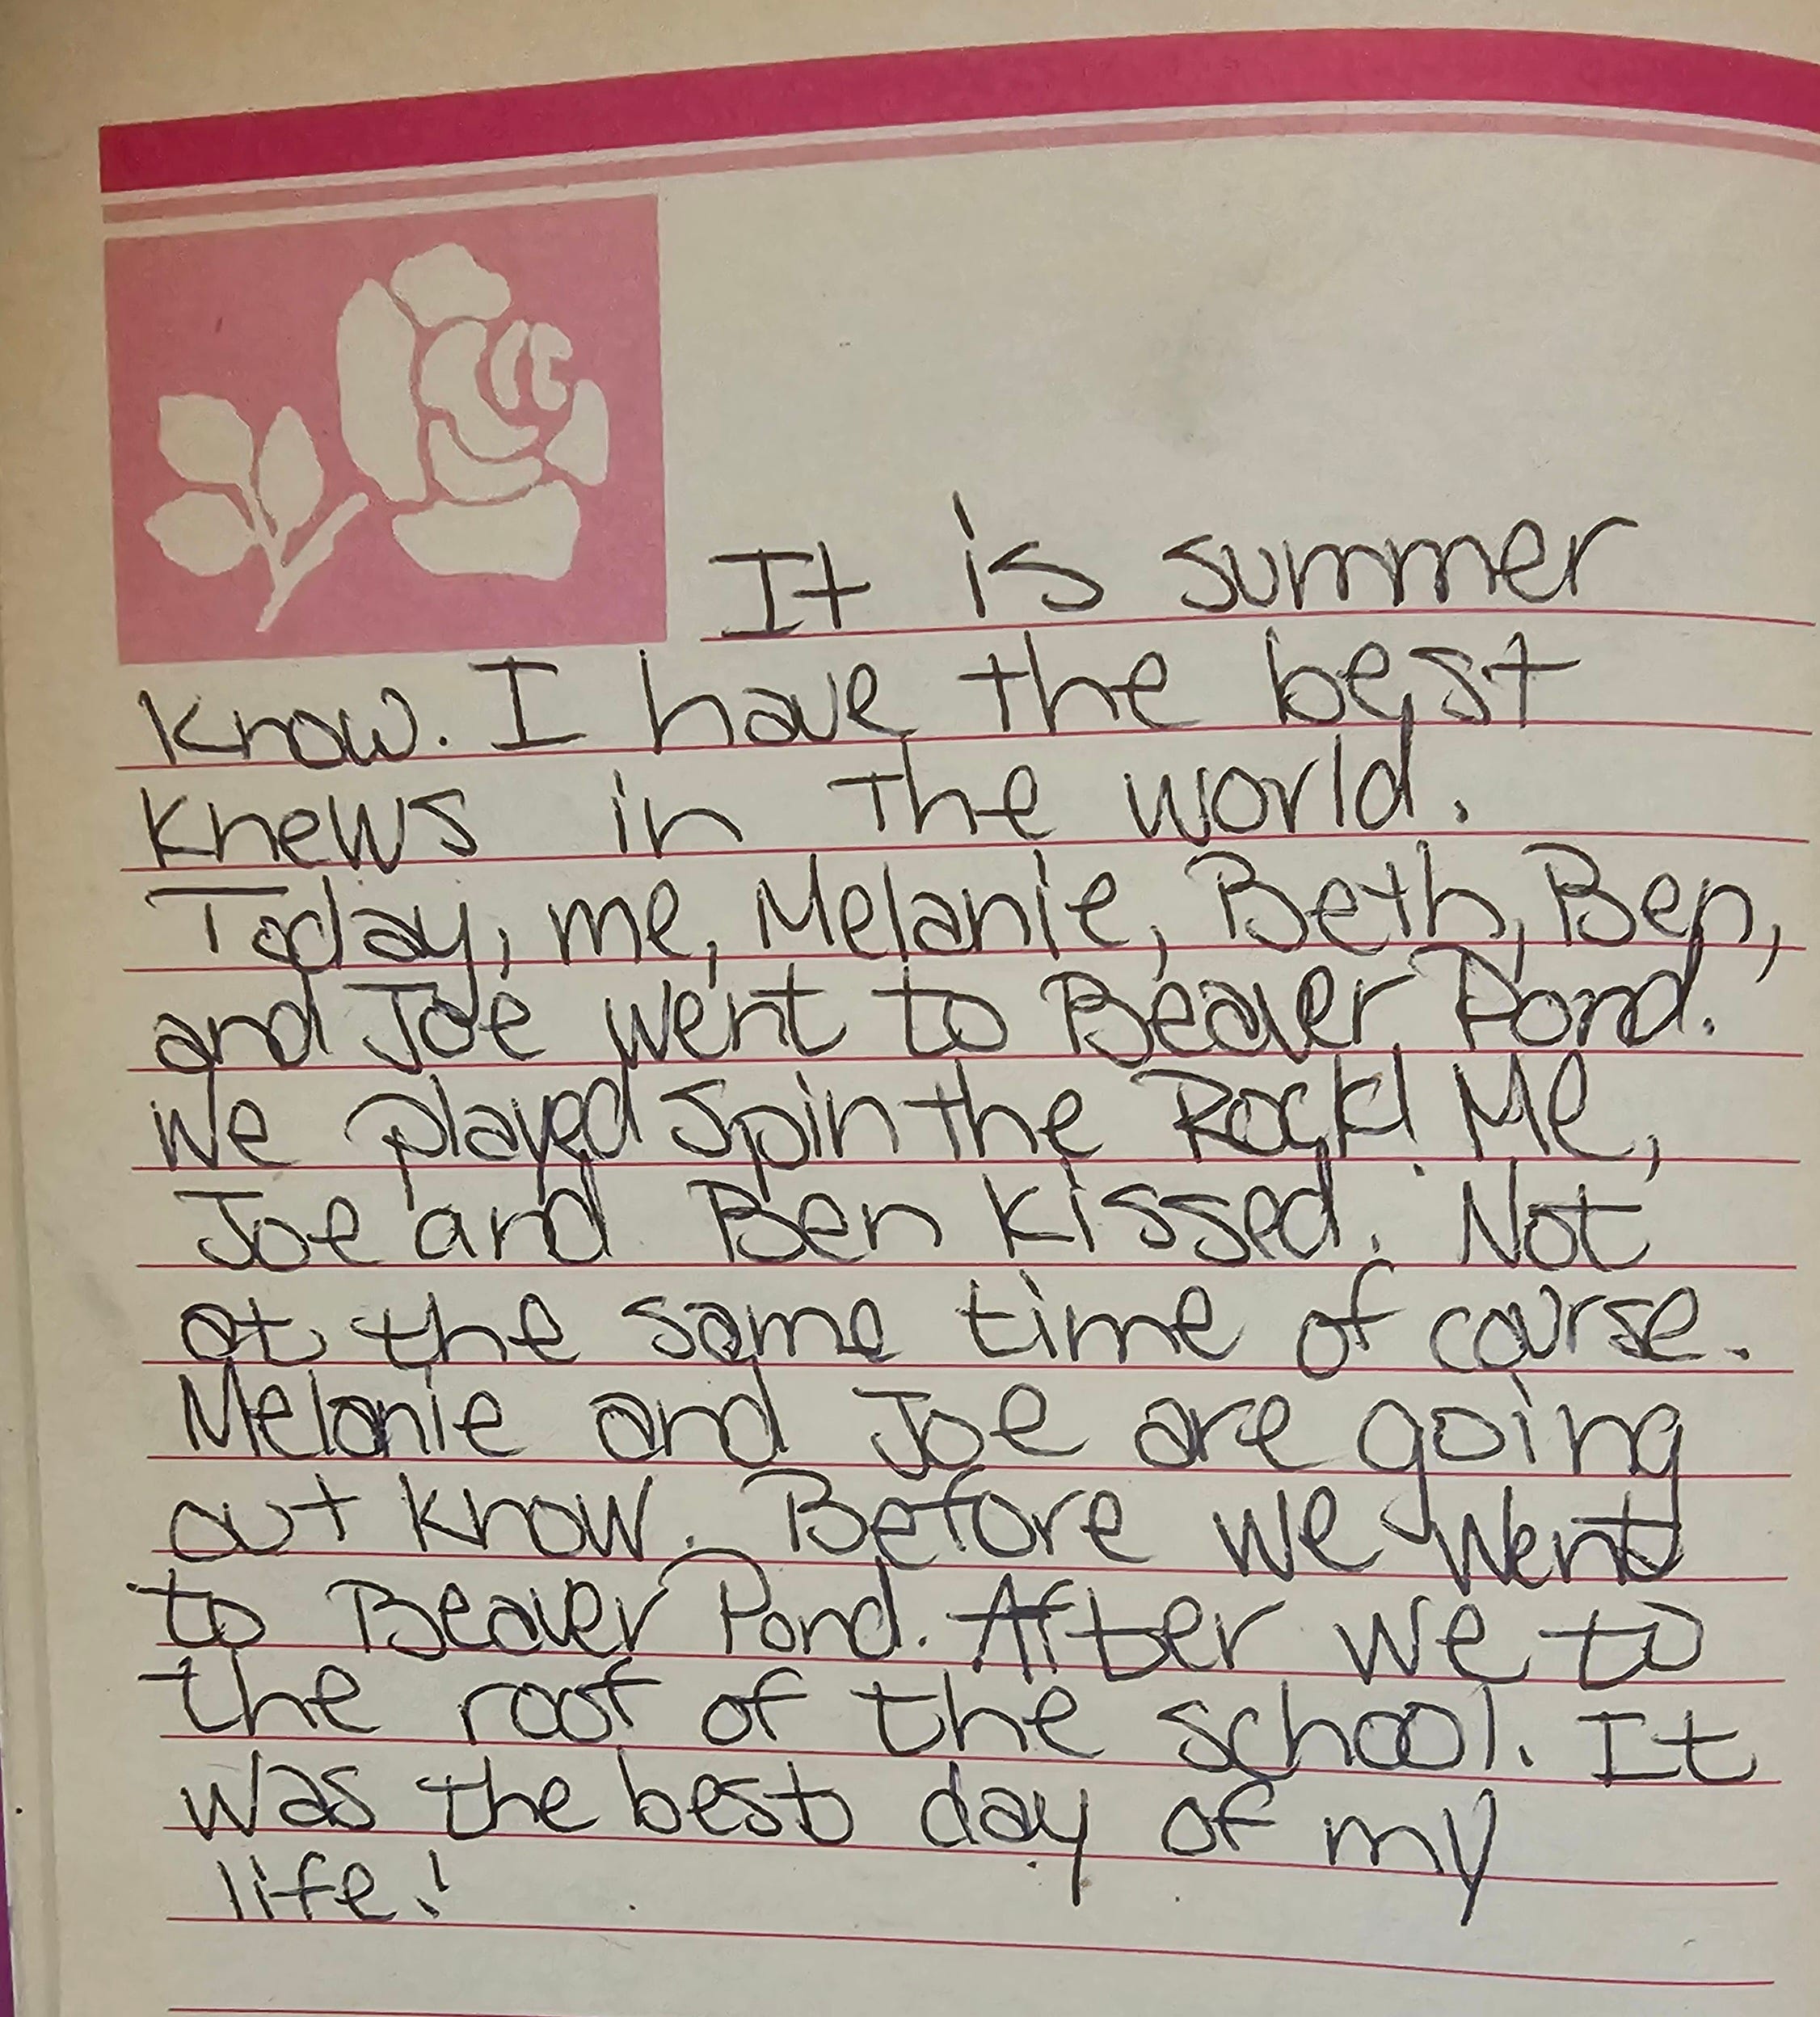 It is summer
know. I have the best
knews in the world.
Today, me, Melanie, Beth, Ben,
and Joe went to Beaver Pond.
We played Spin the Rock! Me,
Joe and Ben kissed. Not
at the same time of course.
Melanie and Joe are going
out know. Before we went
to Beaver Pond. After we to
the roof of the school. It
was the best day of my
life!